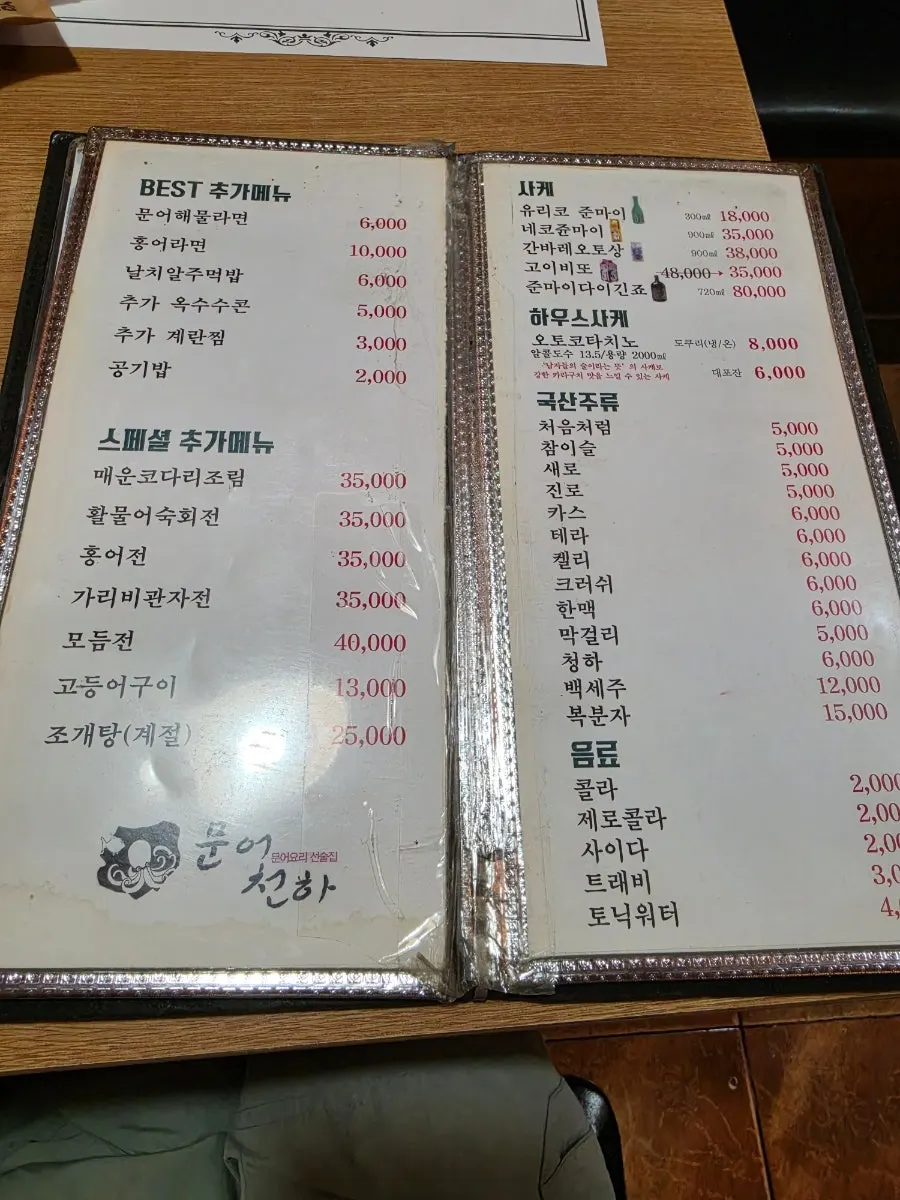 BEST 추가메뉴
문어해물라면 6,000
홍어라면 10,000
날치알주먹밥 6,000
추가 옥수수콘 5,000
추가 계란찜 3,000
공기밥 2,000
스페셜 추가메뉴
매운코다리조림 35,000
활물어숙회전 35,000
홍어전 35,000
가리비관자전 35,000
모듬전 40,000
고등어구이 13,000
조개탕(계절) 25,000
문어
문어요리 선술집
천하
사케
유리코 준마이 300㎖ 18,000
네코쥰마이 900㎖ 35,000
간바레오토상 900㎖ 38,000
고이비또 48,000 → 35,000
준마이다이긴죠 720㎖ 80,000
하우스사케
오토코타치노 도쿠리(냉/온) 8,000
알콜도수 13.5/용량 2000㎖
"남자들의 술이라는 뜻" 의 사케로 대포잔 6,000
강한 카라구치 맛을 느낄 수 있는 사케
국산주류
처음처럼 5,000
참이슬 5,000
새로 5,000
진로 5,000
카스 6,000
테라 6,000
켈리 6,000
크러쉬 6,000
한맥 6,000
막걸리 5,000
청하 6,000
백세주 12,000
복분자 15,000
음료
콜라 2,000
제로콜라 2,00
사이다 2,0
트래비 3,0
토닉워터 4,